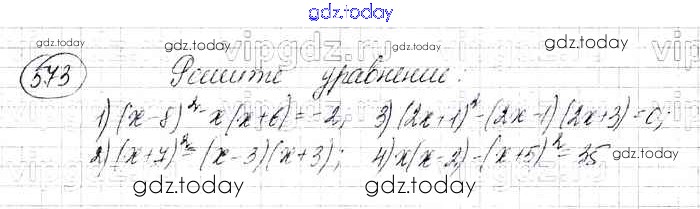 gdz.today
gdz.today vipgdz.ru gdz.today vipgdz.ru
573 Решите уравнение:
1) (x-8)² - x(x+6) = -2; 3) (2x+1)² - (2x-1)(2x+3) = 0;
2) (x+7)² = (x-3)(x+3); 4) x(x-2) - (x+5)² = 35
gdz.today gdz.today gdz.today